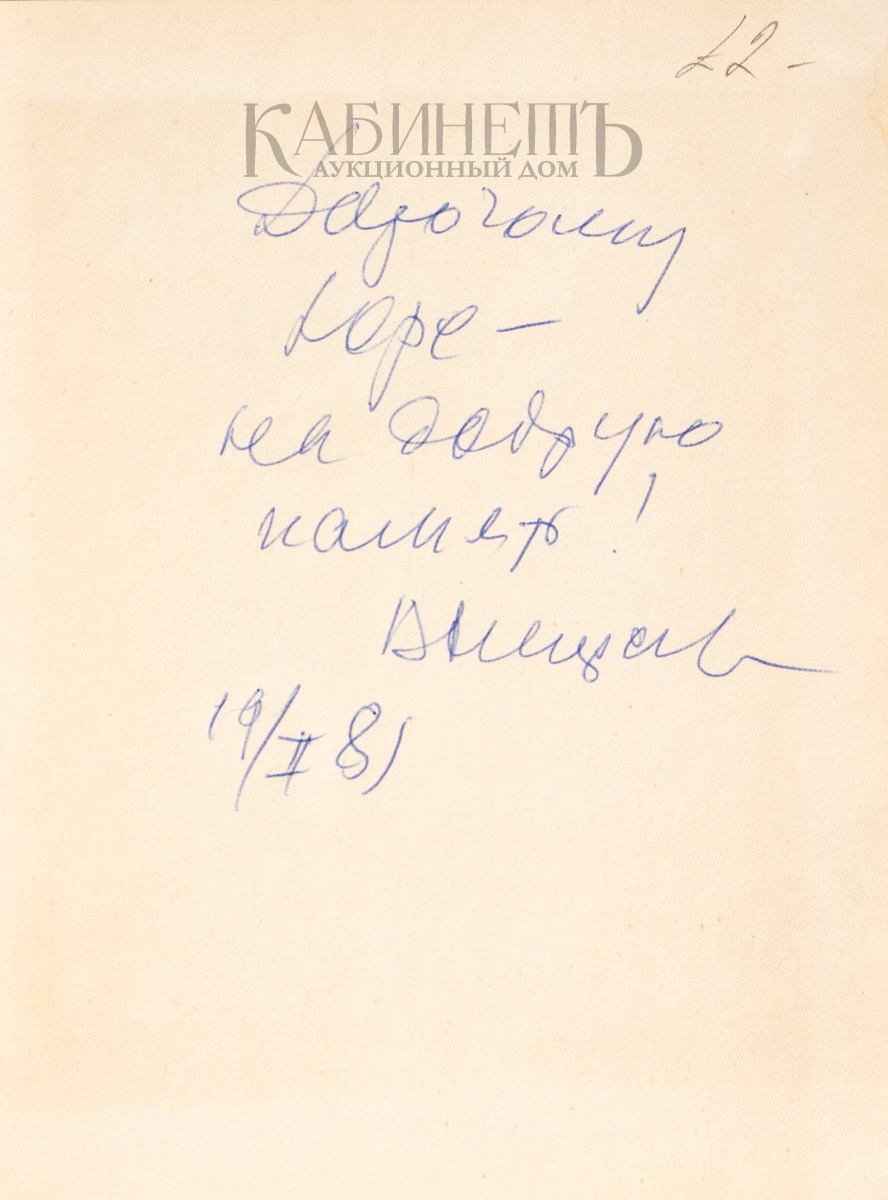 22-
КАБИНЕТЪ
АУКЦИОННЫЙ ДОМ
Дорогому
Юре —
на добрую
память!
19/II 81